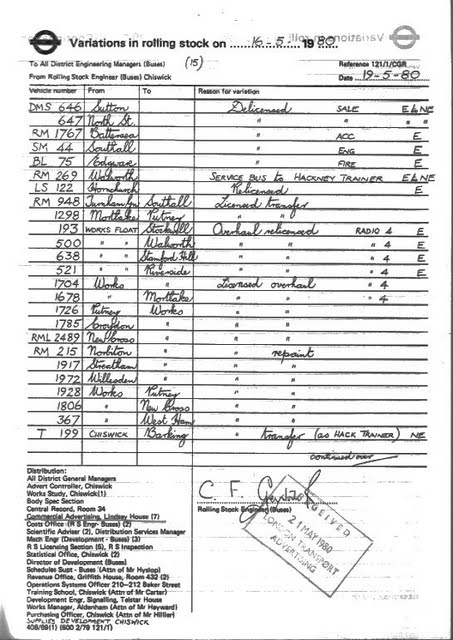 Variations in rolling stock on 16-5-1980
To All District Engineering Managers (Buses) (15) Reference 121/1/CGR
From Rolling Stock Engineer (Buses) Chiswick Date 19-5-80
Vehicle number From To Reason for variation
DMS 646 Sutton Delicensed SALE E & NE
647 North St. " " " "
RM 1767 Battersea " ACC E
SM 44 Southall " ENG E
BL 75 Edgware " FIRE E
RM 269 Walworth SERVICE BUS TO HACKNEY TRAINER E & NE
LS 122 Hornchurch Relicensed E
RM 948 Turnham Gn Southall Licensed transfer
1298 Mortlake Putney " "
193 WORKS FLOAT Stockwell Overhaul relicensed RADIO 4 E
500 " " Walworth " " 4 E
638 " " Stamford Hill " " 4 E
521 " " Riverside " " 4 E
1704 Works " Licensed overhaul " 4
1678 " Mortlake " " " 4
1726 Putney Works " "
1785 Croydon " " "
RML 2489 New Cross " " "
RM 215 Norbiton " " repaint
1917 Streatham " " "
1972 Willesden " " "
1928 Works Putney " "
1806 " New Cross " "
367 " West Ham " "
T 199 CHISWICK Barking " transfer (AS HACK TRAINER) NE
continued over
Distribution:
All District General Managers
Advert Controller, Chiswick
Works Study, Chiswick(1)
Body Spec Section
Central Record, Room 34
Commercial Advertising, Lindsey House (7)
Costs Office (R S Engr- Buses) (2)
Scientific Adviser (2), Distribution Services Manager
Mech Engr (Development - Buses) (3)
R S Licensing Section (5), R S Inspection
Statistical Office, Chiswick (2)
Director of Development (Buses)
Schedules Supt - Buses (Attn of Mr Hyslop)
Revenue Office, Griffith House, Room 432 (2)
Operations Systems Officer 210-212 Baker Street
Training School, Chiswick (Attn of Mr Carter)
Development Engr, Signalling, Telstar House
Works Manager, Aldenham (Attn of Mr Hayward)
Purchasing Officer, Chiswick (Attn of Mr Hillier)
SUPPLIES DEVELOPMENT CHISWICK
408/69(1) (600 2/79 121/1)
C. F.
Rolling Stock Engineer (Buses)
RECEIVED
21 MAY 1980
LONDON TRANSPORT
ADVERTISING